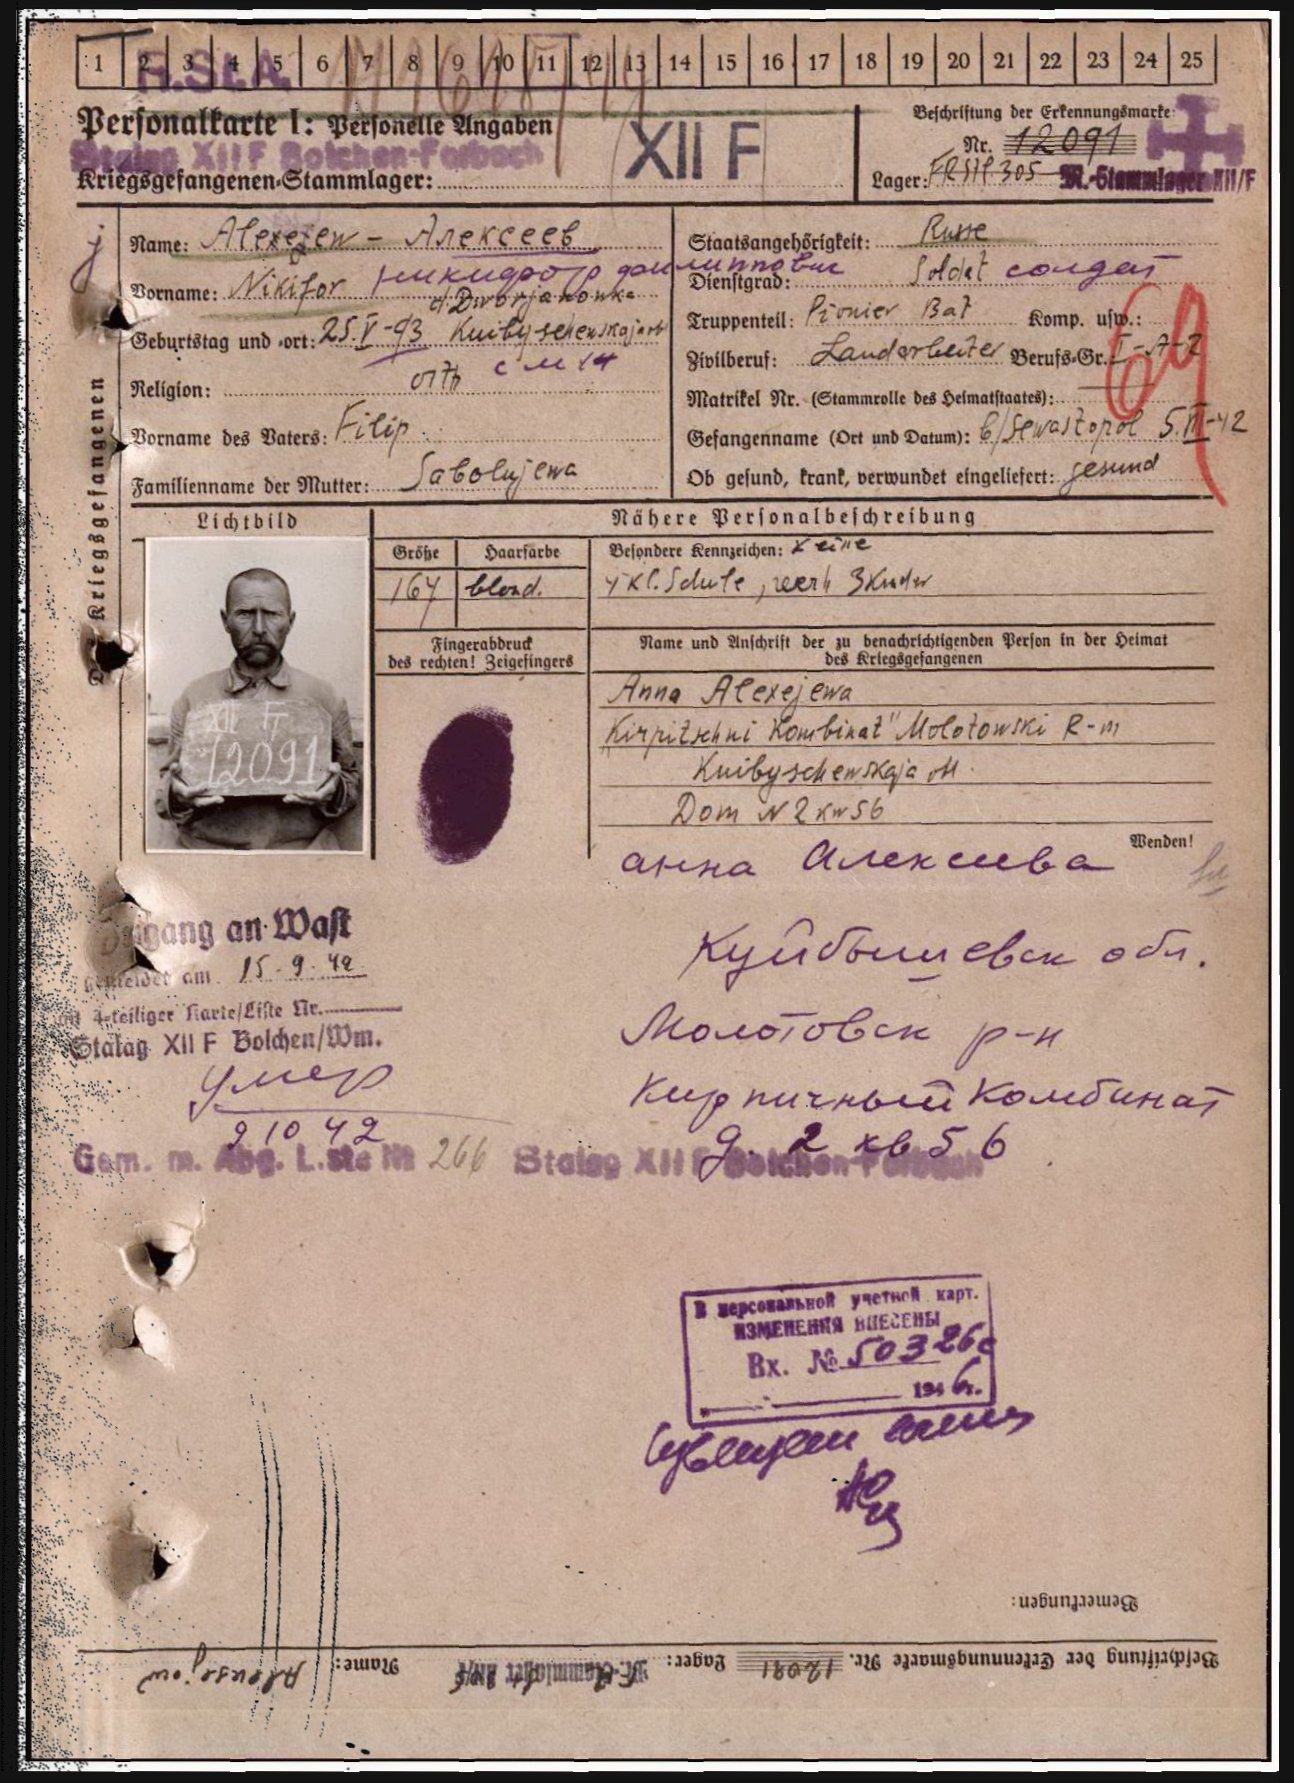 1 2 3 4 5 6 7 8 9 10 11 12 13 14 15 16 17 18 19 20 21 22 23 24 25
Personalkarte I: Personelle Angaben
Stalag XII F Bolchen-Forbach
Kriegsgefangenen-Stammlager:
XII F
Beschriftung der Erkennungsmarke:
Nr. 12091
Lager: FRSTP 305 M.-Stammlager XII/F
Name: Alexejew - Алексеев
Vorname: Nikifor никифор филиппович
d. Dworjanowka
Geburtstag und -ort: 25.V-93 Kuibyschewskaja
Religion: orth
Vorname des Vaters: Filip.
Familienname der Mutter: Sabolujewa
Staatsangehörigkeit: Russe
Dienstgrad: Soldat солдат
Truppenteil: Pionier Bat Komp. usw.:
Zivilberuf: Landarbeiter Berufs-Gr.: I-A-2
69
Matrikel Nr. (Stammrolle des Heimatstaates):
Gefangenname (Ort und Datum): b/Sewastopol 5.VII-42
Ob gesund, krank, verwundet eingeliefert: gesund
Kriegsgefangenen
Lichtbild
XII F
12091
Nähere Personalbeschreibung
Größe Haarfarbe
164 blond.
Besondere Kennzeichen: Keine
4 Kl. Schule, verh 3 Kinder
Fingerabdruck
des rechten! Zeigefingers
Name und Anschrift der zu benachrichtigenden Person in der Heimat
des Kriegsgefangenen
Anna Alexejewa
Kirpitschni Kombinat" Molotowski R-n
Kuibyschewskaja
Dom N 2 kw 56
Wenden!
анна Алексеева
Куйбышевск обл.
Молотовск р-н
Кирпичный Комбинат
д. 2 кв 56
an Wast
gemeldet am 15.9.42
4-teiliger Karte/Liste Nr.
Stalag XII F Bolchen/Wm.
умер
9 10 42
Gem. m. Abg. Liste № 266 Stalag XII F Bolchen-Forbach
В персональной учетной карт.
ИЗМЕНЕНИЯ ВНЕСЕНЫ
Вх. № 50326с
1946г.
Bemerkungen:
Beschriftung der Erkennungsmarke Nr. 12091 Lager: M.-Stammlager XII/F Name: